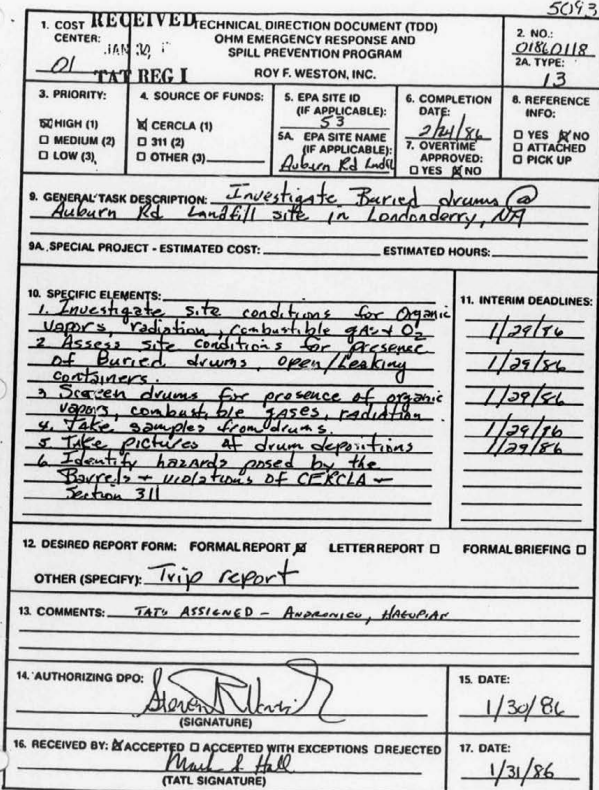 5093
1. COST CENTER: 01
RECEIVED
JAN 30
TAT REG I
TECHNICAL DIRECTION DOCUMENT (TDD)
OHM EMERGENCY RESPONSE AND
SPILL PREVENTION PROGRAM
ROY F. WESTON, INC.
2. NO.:
01860118
2A. TYPE:
13
3. PRIORITY:
☒ HIGH (1)
☐ MEDIUM (2)
☐ LOW (3)
4. SOURCE OF FUNDS:
☒ CERCLA (1)
☐ 311 (2)
☐ OTHER (3)
5. EPA SITE ID
(IF APPLICABLE):
53
5A. EPA SITE NAME
(IF APPLICABLE):
Auburn Rd Lndfl
6. COMPLETION
DATE:
2/24/86
7. OVERTIME
APPROVED:
☐ YES ☒ NO
8. REFERENCE
INFO:
☐ YES ☒ NO
☐ ATTACHED
☐ PICK UP
9. GENERAL TASK DESCRIPTION: Investigate Buried drums @
Auburn Rd Landfill site in Londonderry,
9A. SPECIAL PROJECT - ESTIMATED COST: ESTIMATED HOURS:
10. SPECIFIC ELEMENTS:
1. Investigate site conditions for Organic
vapors, radiation, combustible gas + O2
2 Assess site conditions for presence
of Buried drums, open/Leaking
containers.
3 Screen drums for presence of organic
vapors, combustible gases, radiation
4. Take samples from drums.
5 Take pictures of drum depositions
6 Identify hazards posed by the
Barrels + violations of CERCLA -
Section 311
11. INTERIM DEADLINES:
1/29/86
1/29/86
1/29/86
1/29/86
1/29/86
12. DESIRED REPORT FORM: FORMAL REPORT ☒ LETTER REPORT ☐ FORMAL BRIEFING ☐
OTHER (SPECIFY): Trip report
13. COMMENTS: TATS ASSIGNED - ANDRONICO, HAGOPIAN
14. AUTHORIZING DPO:
(SIGNATURE)
15. DATE:
1/30/86
16. RECEIVED BY: ☒ ACCEPTED ☐ ACCEPTED WITH EXCEPTIONS ☐ REJECTED
Mark S Hall
(TATL SIGNATURE)
17. DATE:
1/31/86